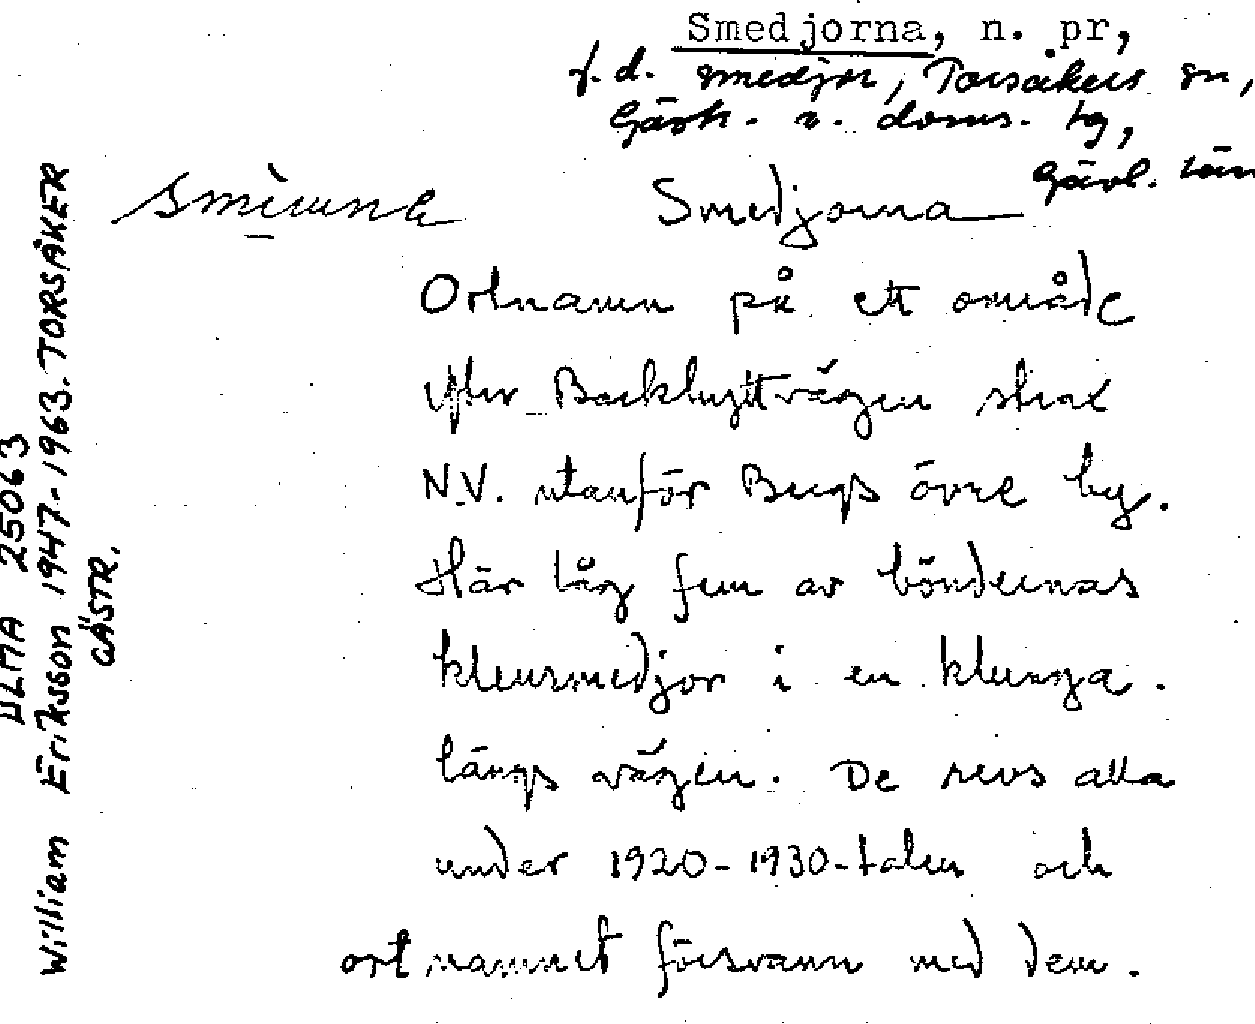 Smedjorna, n. pr,
f.d. smedjor, Torsåkers sn,
Gästr. v. doms. tg,
Gävl. län
smìunna Smedjorna
Ortnamn på ett område
efter Backhyttvägen strax
N.V. utanför Bergs övre by.
Här låg fem av böndernas
klensmedjor i en klunga
längs vägen. De revs alla
under 1920-1930-talen och
ortnamnet försvann med dem.
ULMA 25063
William Eriksson 1947-1963. TORSÅKER
GÄSTR.